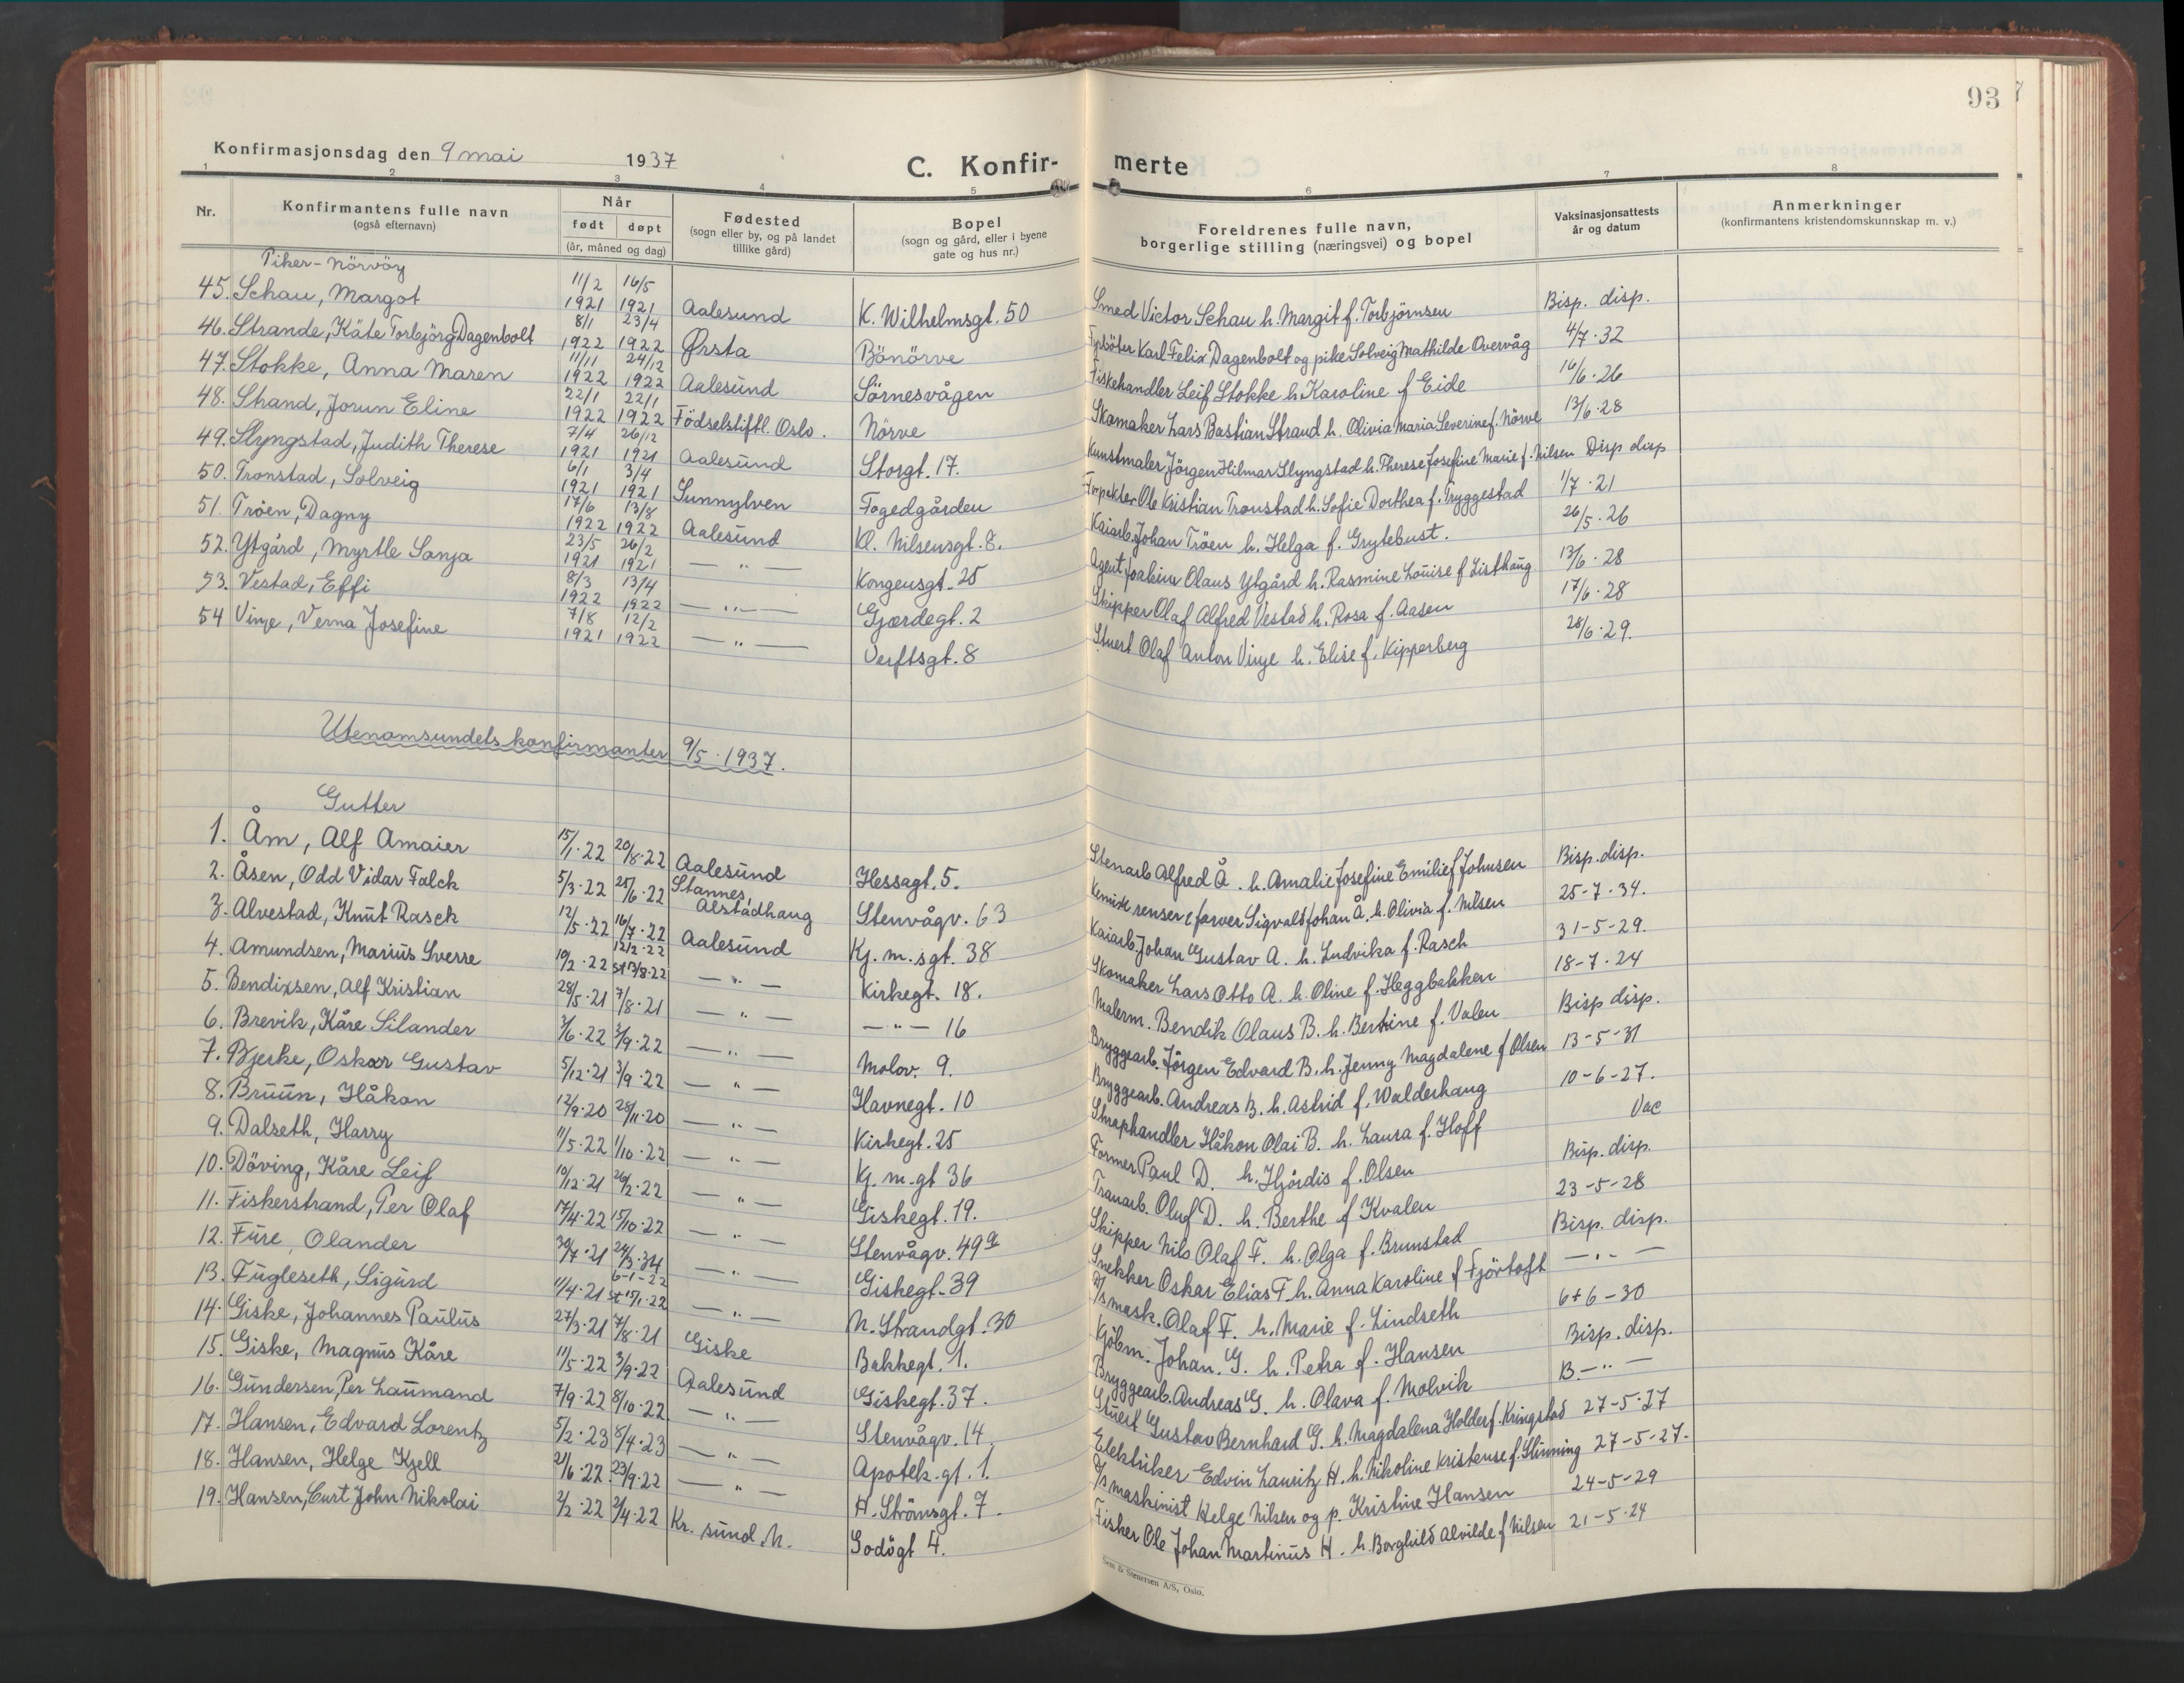 93
Konfirmasjonsdag den 9 mai 1937
C. Konfir- merte
1 2 3 4 5 6 7 8
Nr.
Konfirmantens fulle navn
(også efternavn)
Når
født døpt
(år, måned og dag)
Fødested
(sogn eller by, og på landet
tillike gård)
Bopel
(sogn og gård, eller i byene
gate og hus nr.)
Foreldrenes fulle navn,
borgerlige stilling (næringsvei) og bopel
Vaksinasjonsattests
år og datum
Anmerkninger
(konfirmantens kristendomskunnskap m. v.)
Piker - Nörvöy
45. Schau, Margot 11/2 1921 16/5 1921 Aalesund K. Wilhelmsgt. 50 Smed Victor Schau h. Margit f. Torbjörnsen Bisp. disp.
46. Strande, Käte Torbjörg Dagenbolt 8/1 1922 23/4 1922 Ørsta Bönörve Fyrböter Karl Felix Dagenbolt og pike Solveig Mathilde Overvåg 4/7. 32
47. Stokke, Anna Maren 11/11 1922 24/12 1922 Aalesund Sörnesvågen Fiskehandler Leif Stokke h. Karoline f Eide 16/6. 26
48. Strand, Jorun Eline 22/1 1922 22/1 1922 Födselstiftl. Oslo. Nörve Skomaker Lars Bastian Strand h. Olivia Maria Severine f. Nörve 13/6. 28
49. Slyngstad, Judith Therese 7/4 1921 26/12 1921 Aalesund Storgt. 17. Kunstmaler Jörgen Hilmar Slyngstad h. Therese Josefine Marie f. Nilsen Disp disp
50. Tronstad, Solveig 6/1 1921 3/4 1921 Sunnylven Fogedgården Ole Kristian Tronstad h. Sofie Dorthea f. Tryggestad 1/7. 21
51. Tröen, Dagny 17/6 1922 13/8 1922 Aalesund Kl. Nilsensgt. 8. Kaiarb. Johan Tröen h. Helga f. Grytebust. 26/5. 26
52. Ytgård, Myrtle Sonja 23/5 1921 26/2 1921 — " — Kongensgt. 25 Agent Joakim Olaus Ytgård h. Rasmine Louise f Listhaug 13/6. 28
53. Vestad, Effi 8/3 1922 13/4 1922 — " — Gjærdegt. 2 Skipper Olaf Alfred Vestad h. Rosa f. Aasen 17/6. 28
54 Vinje, Verna Josefine 7/8 1921 12/2 1922 — " — Verftsgt. 8 Stuert Olaf Anton Vinje h. Elise f. Kipperberg 28/6. 29.
Utenomsundets konfirmanter 9/5. 1937.
Gutter
1. Åm, Alf Amaier 15/1. 22 20/8. 22 Aalesund Hessagt. 5. Stenarb Alfred Å. h. Amalie Josefine Emilie f Johnsen Bisp. disp.
2. Åsen, Odd Vidar Falck 5/3. 22 25/6. 22 Stannes, Alstadhaug Stenvågv. 63 Kemisk renser & farver Sigvald Johan Å. h. Olivia f. Nilsen 25-7. 34.
3. Alvestad, Knut Rasck 12/5. 22 16/7. 22 Aalesund Kj. m. sgt. 38 Kaiarb. Johan Gustav A. h. Ludvika f. Rasch 31-5-29.
4. Amundsen, Marius Sverre 10/2. 22 12/2. 22 st 13/8. 22 — " — Kirkegt. 18. Skomaker Lars Otto A. h. Oline f. Heggbakken 18-7. 24
5. Bendixsen, Alf Kristian 28/5. 21 7/8. 21 — " — — " — 16 Malerm. Bendik Olaus B. h. Bertine f. Valen Bisp disp.
6. Brevik, Kåre Silander 3/6. 22 3/9. 22 — " — Molov. 9. Bryggearb. Jörgen Edvard B. h. Jenny Magdalene f Olsen 13-5-31
7. Bjerke, Oskar Gustav 5/12. 21 3/9. 22 — " — Havnegt. 10 Bryggearb. Andreas B. h. Astrid f. Walderhaug 10-6-27.
8. Bruun, Håkon 12/9. 20 28/11. 20 — " — Kirkegt. 25 Skraphandler Håkon Olai B. h. Laura f. Hoff Vac
9. Dalseth, Harry 11/5. 22 1/10. 22 — " — Kj. m. gt 36 Former Paul D. h. Hjördis f. Olsen Bisp. disp.
10. Döving, Kåre Leif 10/12. 21 26/2. 22 — " — Giskegt. 19. Tranarb. Oluf D. h. Berthe f Kvalen 23-5-28
11. Fiskerstrand, Per Olaf 17/4. 22 15/10. 22 — " — Stenvågv. 49a Skipper Nils Olaf F. h. Olga f. Brunstad Bisp. disp.
12. Fure, Olander 30/7. 21 24/3. 34 — " — Giskegt. 39 Snekker Oskar Elias F. h. Anna Karoline f Fjörtoft — " —
13. Fugleseth, Sigurd 11/4. 21 6-1-22 st 15/1. 22 — " — N. Strandgt. 30 D/s mask. Olaf F. h. Marie f. Lindseth 6+6-30
14. Giske, Johannes Paulus 27/3. 21 7/8. 21 Giske Bakkegt. 1. Kjöbm. Johan. G. h. Petra f. Hansen Bisp. disp.
15. Giske, Magnus Kåre 11/5. 22 3/9. 22 Aalesund Giskegt. 37. Bryggearb. Andreas G. h. Olava f. Molvik B. — " —
16. Gundersen, Per Laumand 7/9. 22 8/10. 22 — " — Stenvågv. 14. Stuert Gustav Bernhard G. h. Magdalena Holder f. Kringstad 27-5. 27
17. Hansen, Edvard Lorentz 5/2. 23 8/4. 23 — " — Apotek. gt. 1. Elektriker Edvin Lauritz H. h. Nikoline Kristense f. Slinning 27-5-27.
18. Hansen, Helge Kjell 2/6. 22. 23/9. 22 — " — H. Strömsgt. 7. D/s maskinist Helge Nilsen og p. Kristine Hansen 24-5-29
19. Hansen, Curt John Nikolai 2/2. 22 2/4. 22 Kr. sund. N. Godögt 4. Fisker Ole Johan Martinus H. h. Borghild Alvilde f Nilsen 21-5. 24
Sem & Stenersen A/S, Oslo.